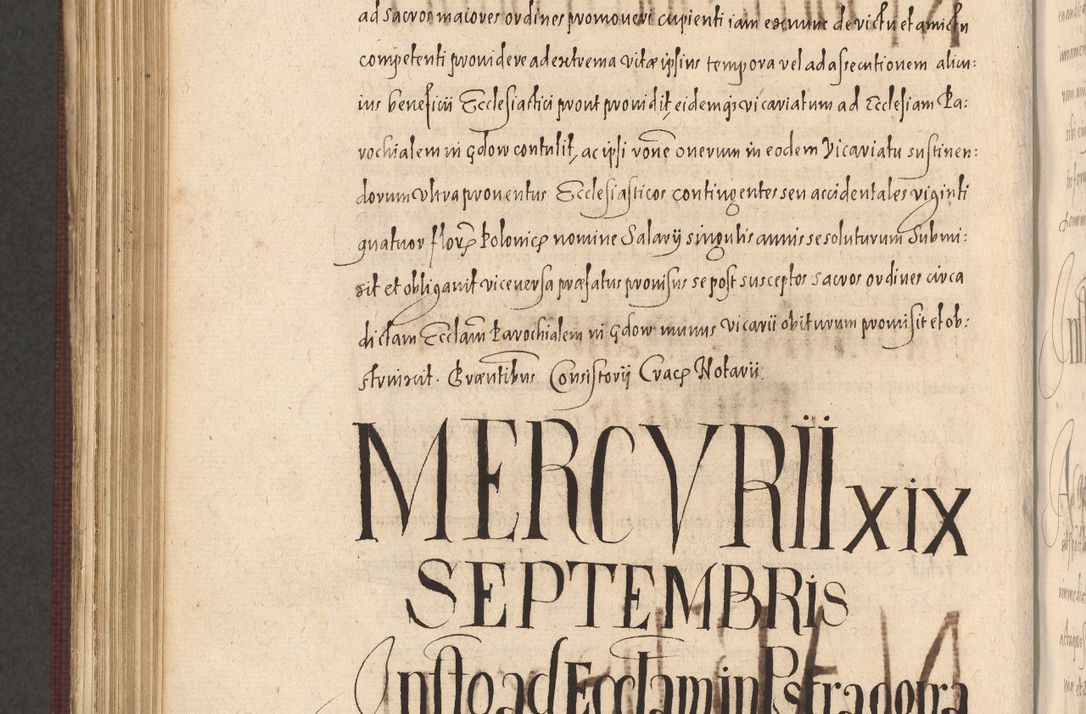 ad sacros maiores ordines promoveri cupienti iam ex nunc de victu et amictu
competenti providere ad extrema vitæ ipsius tempora vel ad assecutionem alicu:
ius beneficii Ecclesiastici prout providit, eidemq; vicariatum ad Ecclesiam Pa:
rochialem in Gdow contulit, ac ipsi rõne onerum in eodem Vicariatu sustinen:
dorum ultra proventus Ecclesiasticos contingentes seu accidentales viginti
quatuor flor. Polonic. nomine Salarij singulis annis se soluturum Submi:
sit et obligavit vice versa præfatus provisus se post susceptos sacros ordines circa
dictam Eccl̃am Parochialem in Gdow munus vicarii obiturum promisit et ob:
strinxit. Præntibus Consistorij Crac. Notarii.
MERCVRII XIX
SEPTEMBRis
Insto ad Eccl̃am in Pstragowa